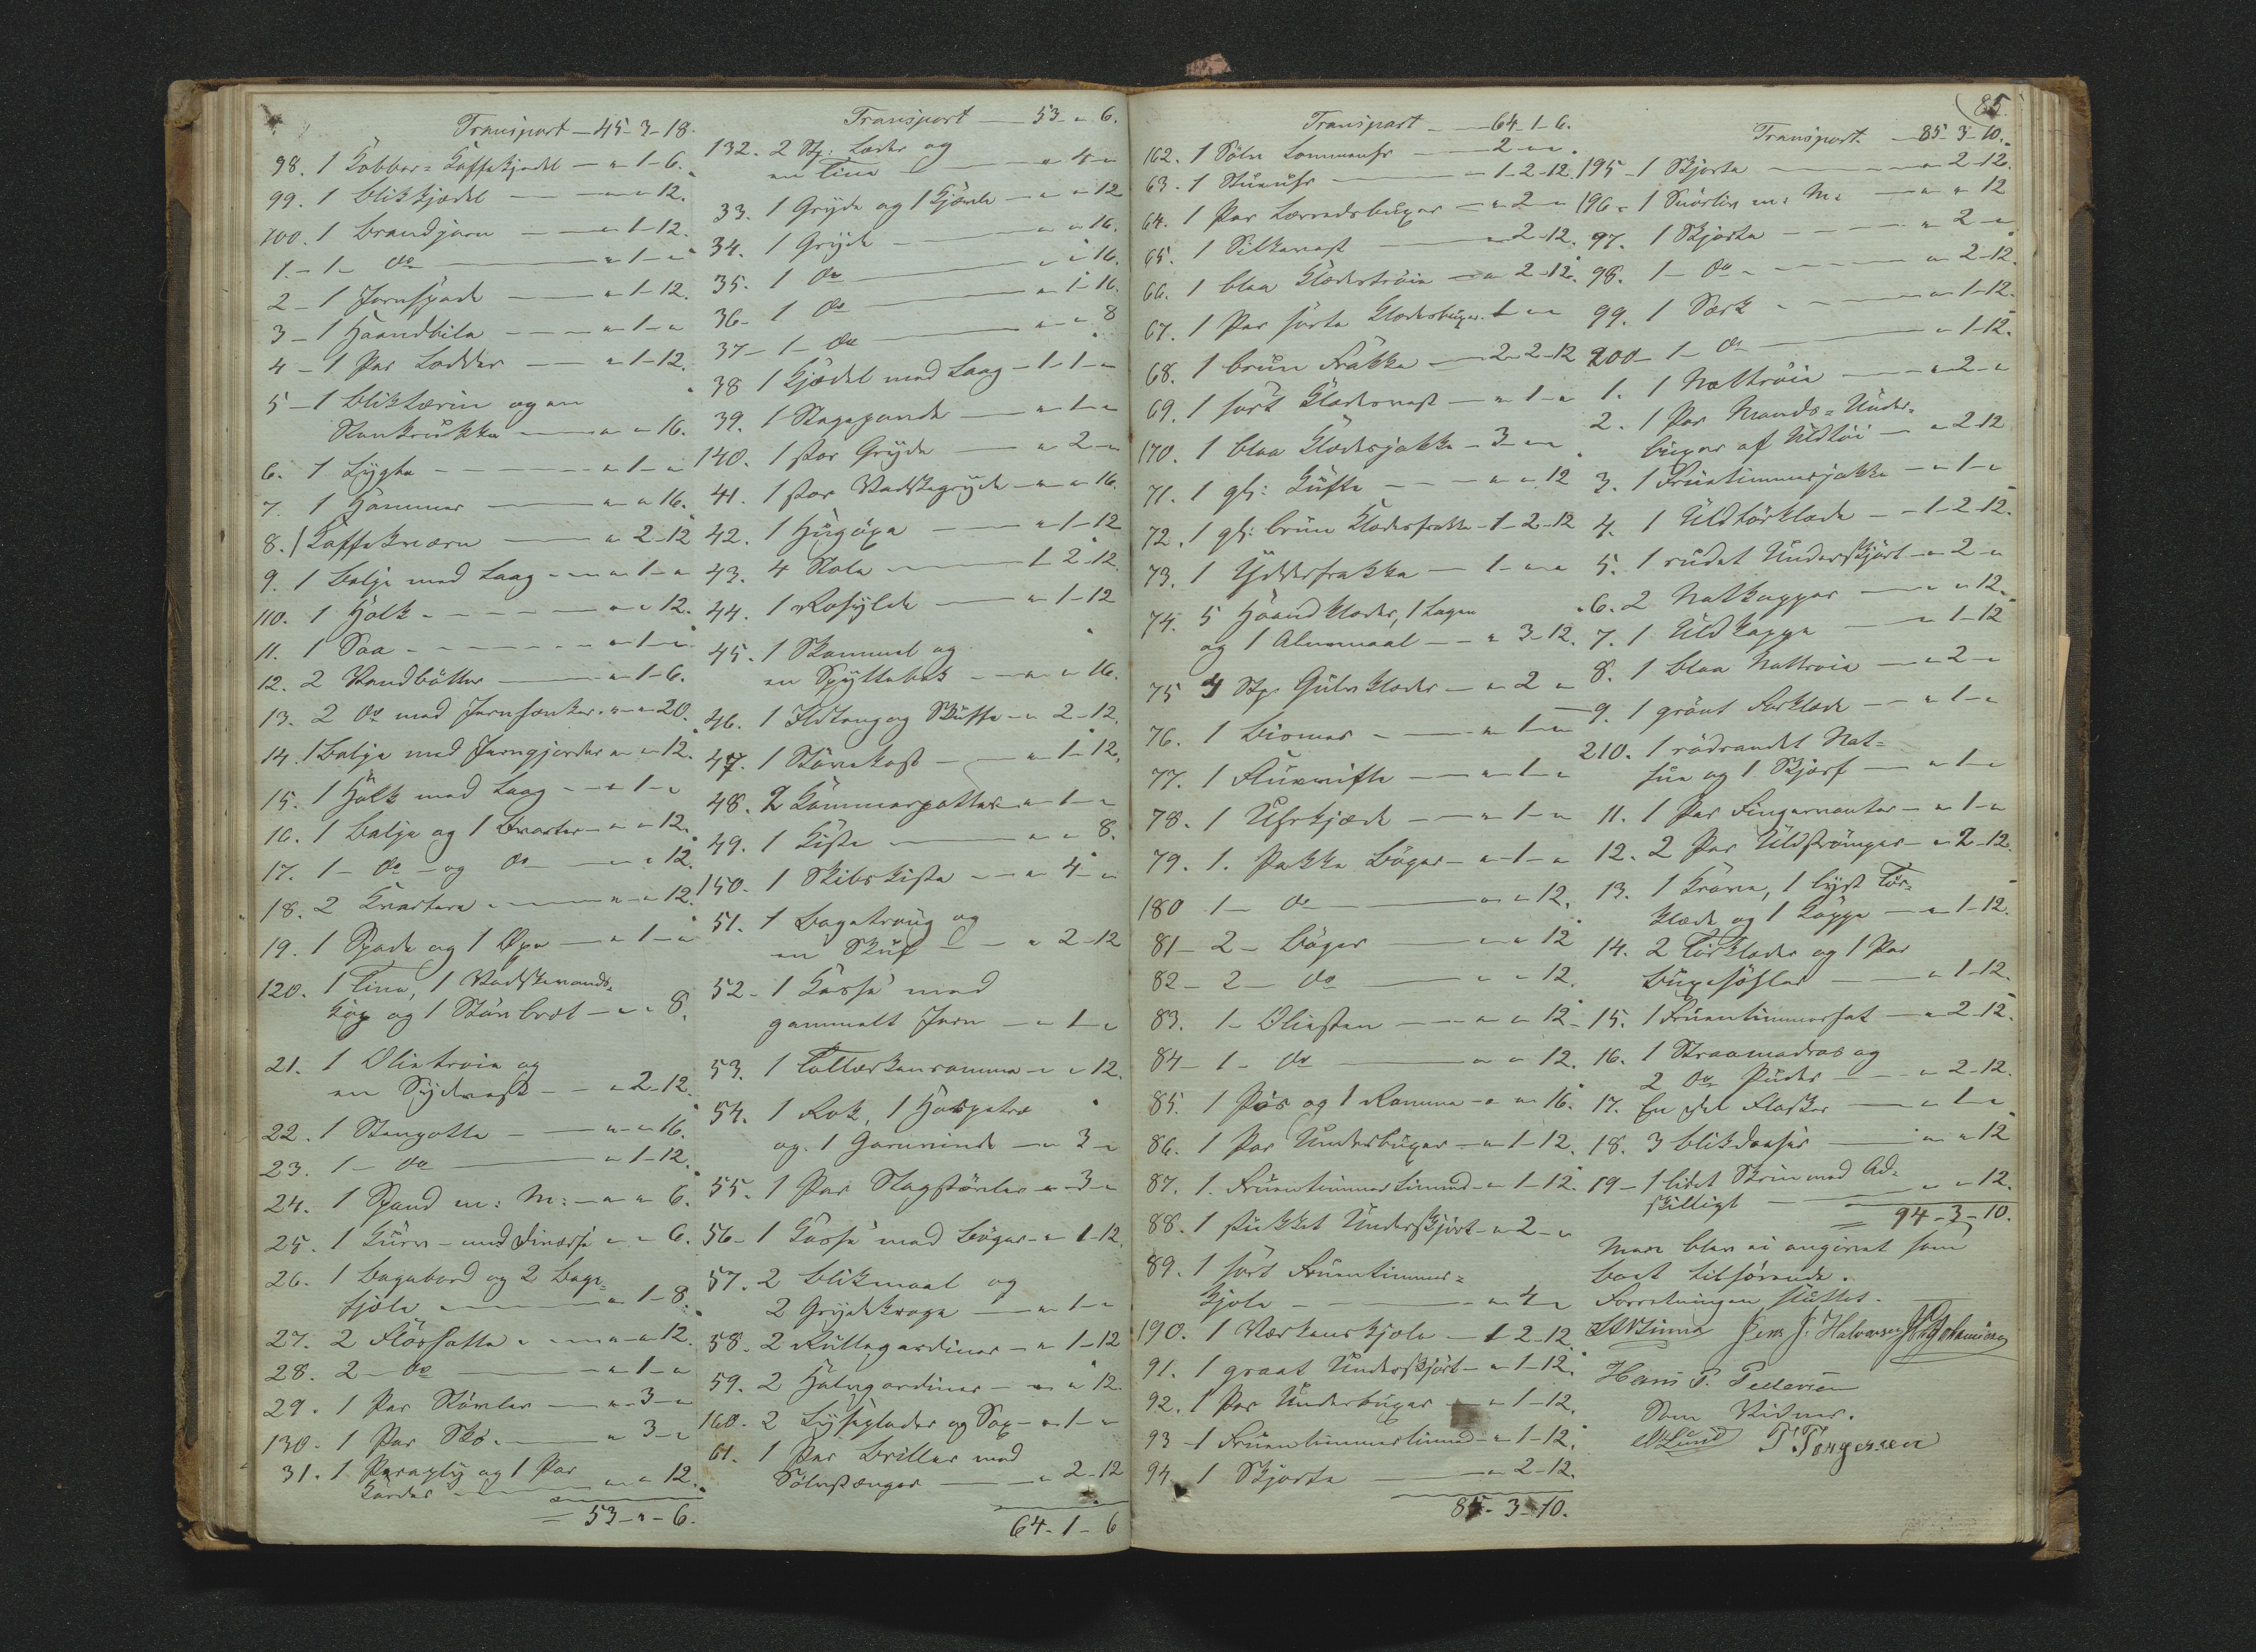 Transport - 45-3-18.
98. 1 Kobber-Kaffekjedel - " 1-6.
99. 1 Blikkjedel - " " 12.
100. 1 Brandjern - " 1-12.
1. - 1 - do - " 1 - "
2 - 1 Jernspade - " 1-12.
3 - 1 Haandbila - " 1 - "
4 - 1 Par Lodder - " 1-12.
5 - 1 Bliktærin og en
Stenkrukke - " " 16.
6. 1 Lygte - " 1 - "
7. 1 Hammer - " " 16.
8. 1 Kaffekværn - " 2-12
9. 1 Balje med Laag - " 1 - "
110. 1 Holk - " " 12.
11. 1 Saa - " 1 - "
12. 2 Vandbøtter - " 1-6.
13. 2 do med Jern - " " 20.
14. 1 Balje med Jerngjorder " " 12.
15. 1 Holk med Laag - " 1 - "
16. 1 Balje og 1 Kvarter - " " 12.
17. 1 - do - og do - " " 12.
18. 2 Kvartere - " " 12.
19. 1 Spade og 1 Øxe - " 1 - "
120. 1 Tine, 1 Vadskevands-
kop og 1 bret - " " 8.
21. 1 Olietrøie og
en Sydvest - " 2-12.
22. 1 Stenpotte - " " 16.
23. 1 - do - " 1-12.
24. 1 Spand m: M: - " " 6.
25. 1 Kurv - med " " 6.
26. 1 Bagebord og 2 Bage-
fjøle - " 1-8.
27. 2 - " " 12.
28. 2 - do - " 1 - "
29. 1 Par Støvler - " 3 - "
130. 1 Par Sko - " 3 - "
31. 1 Paraply og 1 Par
Karder - " " 12.
= 53 - " - 6.
Transport - 53 - " 6.
132. 2 Stk: Læder og
en Tine - " 4 "
33. 1 Gryde og 1 Kjørel - " " 12
34. 1 Gryde - " " 16.
35. 1 do - " " 16.
36 - 1 do - " 1-16.
37 - 1 - do - " " 8
38 1 Kjedel med Laag - 1-1 - "
39. 1 Stegepande - " 1 - "
140. 1 stor Gryde - " 2 - "
41. 1 stor Vadskegryde - " " 16.
42. 1 Hugøxe - " 1-12
43. 4 Stole - 1-2-12.
44. 1 - " 1-12
45. 1 Skammel og
en Spyttebak - " " 16.
46. 1 Ildtang og Skuffe - " 2-12.
47. 1 Støvekost - " 1-12.
48. 2 Kammerpotter - " 1 - "
49. 1 Kiste - " " 8.
150. 1 Skibskiste - " 4 - "
51. 1 Bagetroug og
en Skuf - " 2-12
52 - 1 Kasse med
gammelt Jern - " 1 - "
53. 1 Tallerkenramme - " " 12.
54. 1 Rok, 1 Haspetræ
og 1 Garnvinde - " 3 "
55. 1 Par Slagstøvler - " 3 "
56 - 1 Kasse med Bøger - " 1-12.
57. 2 Blikmaal og
2 Grydekroge - " 1 - "
58. 2 Rullegardiner - " 1-12
59. 2 Halvgardiner - " " 12.
160. 2 Lyseplader og Sax - " 1 - "
61. 1 Par Briller med
Sølvstænger - " 2-12
64-1-6
85.
Transport - 64-1-6.
162. 1 Sølv Lommeuhr - 2 " ".
63. 1 Stueuhr - 1-2-12.
64. 1 Par Lærredsbuxer - " 2 "
65. 1 Silkevest - " 2-12.
66. 1 blaa Klædestrøie - " 2-12.
67. 1 Par sorte Klædesbuxer - 1 " "
68. 1 brun Frakke - 2-2-12
69. 1 sort Klædesvest - " 1 - "
170. 1 blaa Klædesjakke - 3 " "
71. 1 gl: Kufte - " " 12
72. 1 gl: brun Klædesfrakke - 1-2-12
73. 1 Ydderfrakke - 1 " "
74. 5 Haandklæder, 1 Lagen
og 1 - " 3-12.
75 4 Stk: Gulvklæder - " 2 "
76. 1 Bismer - " 1 "
77. 1 Fluevifte - " 1 "
78. 1 Uhrkjæde - " 1 "
79. 1. Pakke Bøger - " 1 "
180 1 - do - " " 12.
81 - 2 - Bøger - " " 12
82 - 2 - do - " " 12.
83. 1 - Oliesten - " " 12
84 - 1 - do - " " 12.
85. 1 Pos og 1 Ramme - " " 16.
86. 1 Par Underbuxer - " 1-12.
87. 1. Fruentimmerlinned - " 1-12.
88. 1 stukket Underskjørt - " 2 - "
89. 1 sort Fruentimmer-
kjole - " 4 "
190. 1 Værkenskjole - 1-2-12.
91. 1 graat Underskjørt - " 1-12.
92. 1 Par Underbuxer - " 1-12.
93 - 1 Fruentimmerlinned - " 1-12.
94 1 Skjorte - " 2-12.
85-3-10.
Transport - 85-3-10.
195 - 1 Skjorte - " 2-12.
196 - 1 Snørliv m: M: - " " 12
97. 1 Skjorte - " 2 - "
98. 1 - do - " 2-12.
99. 1 Særk - " 1-12.
200 - 1 - do - " 1-12.
1. 1 Nattrøie - " 2 - "
2. 1 Par Mands-Under-
buxer af Uldtøi - " 2-12
3. 1 Fruentimmerjakke - " 1 - "
4. 1 Uldtørklæde - 1-2-12.
5. 1 rudet Underskjørt - " 2 - "
6. 2 Natkapper - " " 12.
7. 1 Uldkappe - " 1-12
8. 1 blaa Nattrøie - " 2 - "
9. 1 grønt Forklæde - " 1 - "
210. 1 rødrandet Nat-
hue og 1 Skjærf - " 1 - "
11. 1 Par Fingervanter - " 1 - "
12. 2 Par Uldstrømper - " 2-12.
13. 1 Krave, 1 lyst Tør-
klæde og 1 Kappe - " 1-12.
14. 2 Tørklæder og 1 Par
Buxeseler - " 1-12.
15. 1 Fruentimmerhat - " 2-12.
16. 1 Straamadras og
2 do Puder - " 2-12.
17. En Del Flasker - " 1 - "
18. 3 Blikdaaser - " " 12
19 - 1 lidet Skrin med Ad-
skilligt - " " 12.
= 94-3-10.
Mere blev ei angivet som
Boet tilhørende.
Forretningen sluttet.
Jens J. Halvorsen
Hans P. Pedersen
Som Vidner.
Lund T Torgersen